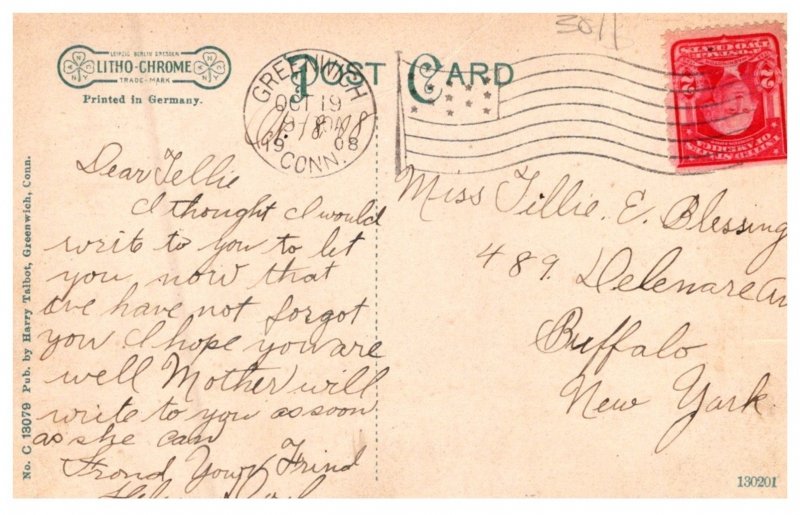 3011
LEIPZIG BERLIN DRESDEN
LITHO-CHROME
TRADE-MARK
Printed in Germany.
POST CARD
GREENWICH
OCT 19
1908
CONN.
Dear Tellie
I thought I would
write to you to let
you now that
we have not forgot
you I hope you are
well Mother will
write to you as soon
as she can
From Your Frind
Miss Tillie. E. Blessing
489. Delenare Av
Buffalo
New York
No. C 13079 Pub. by Harry Talbot, Greenwich, Conn.
130201